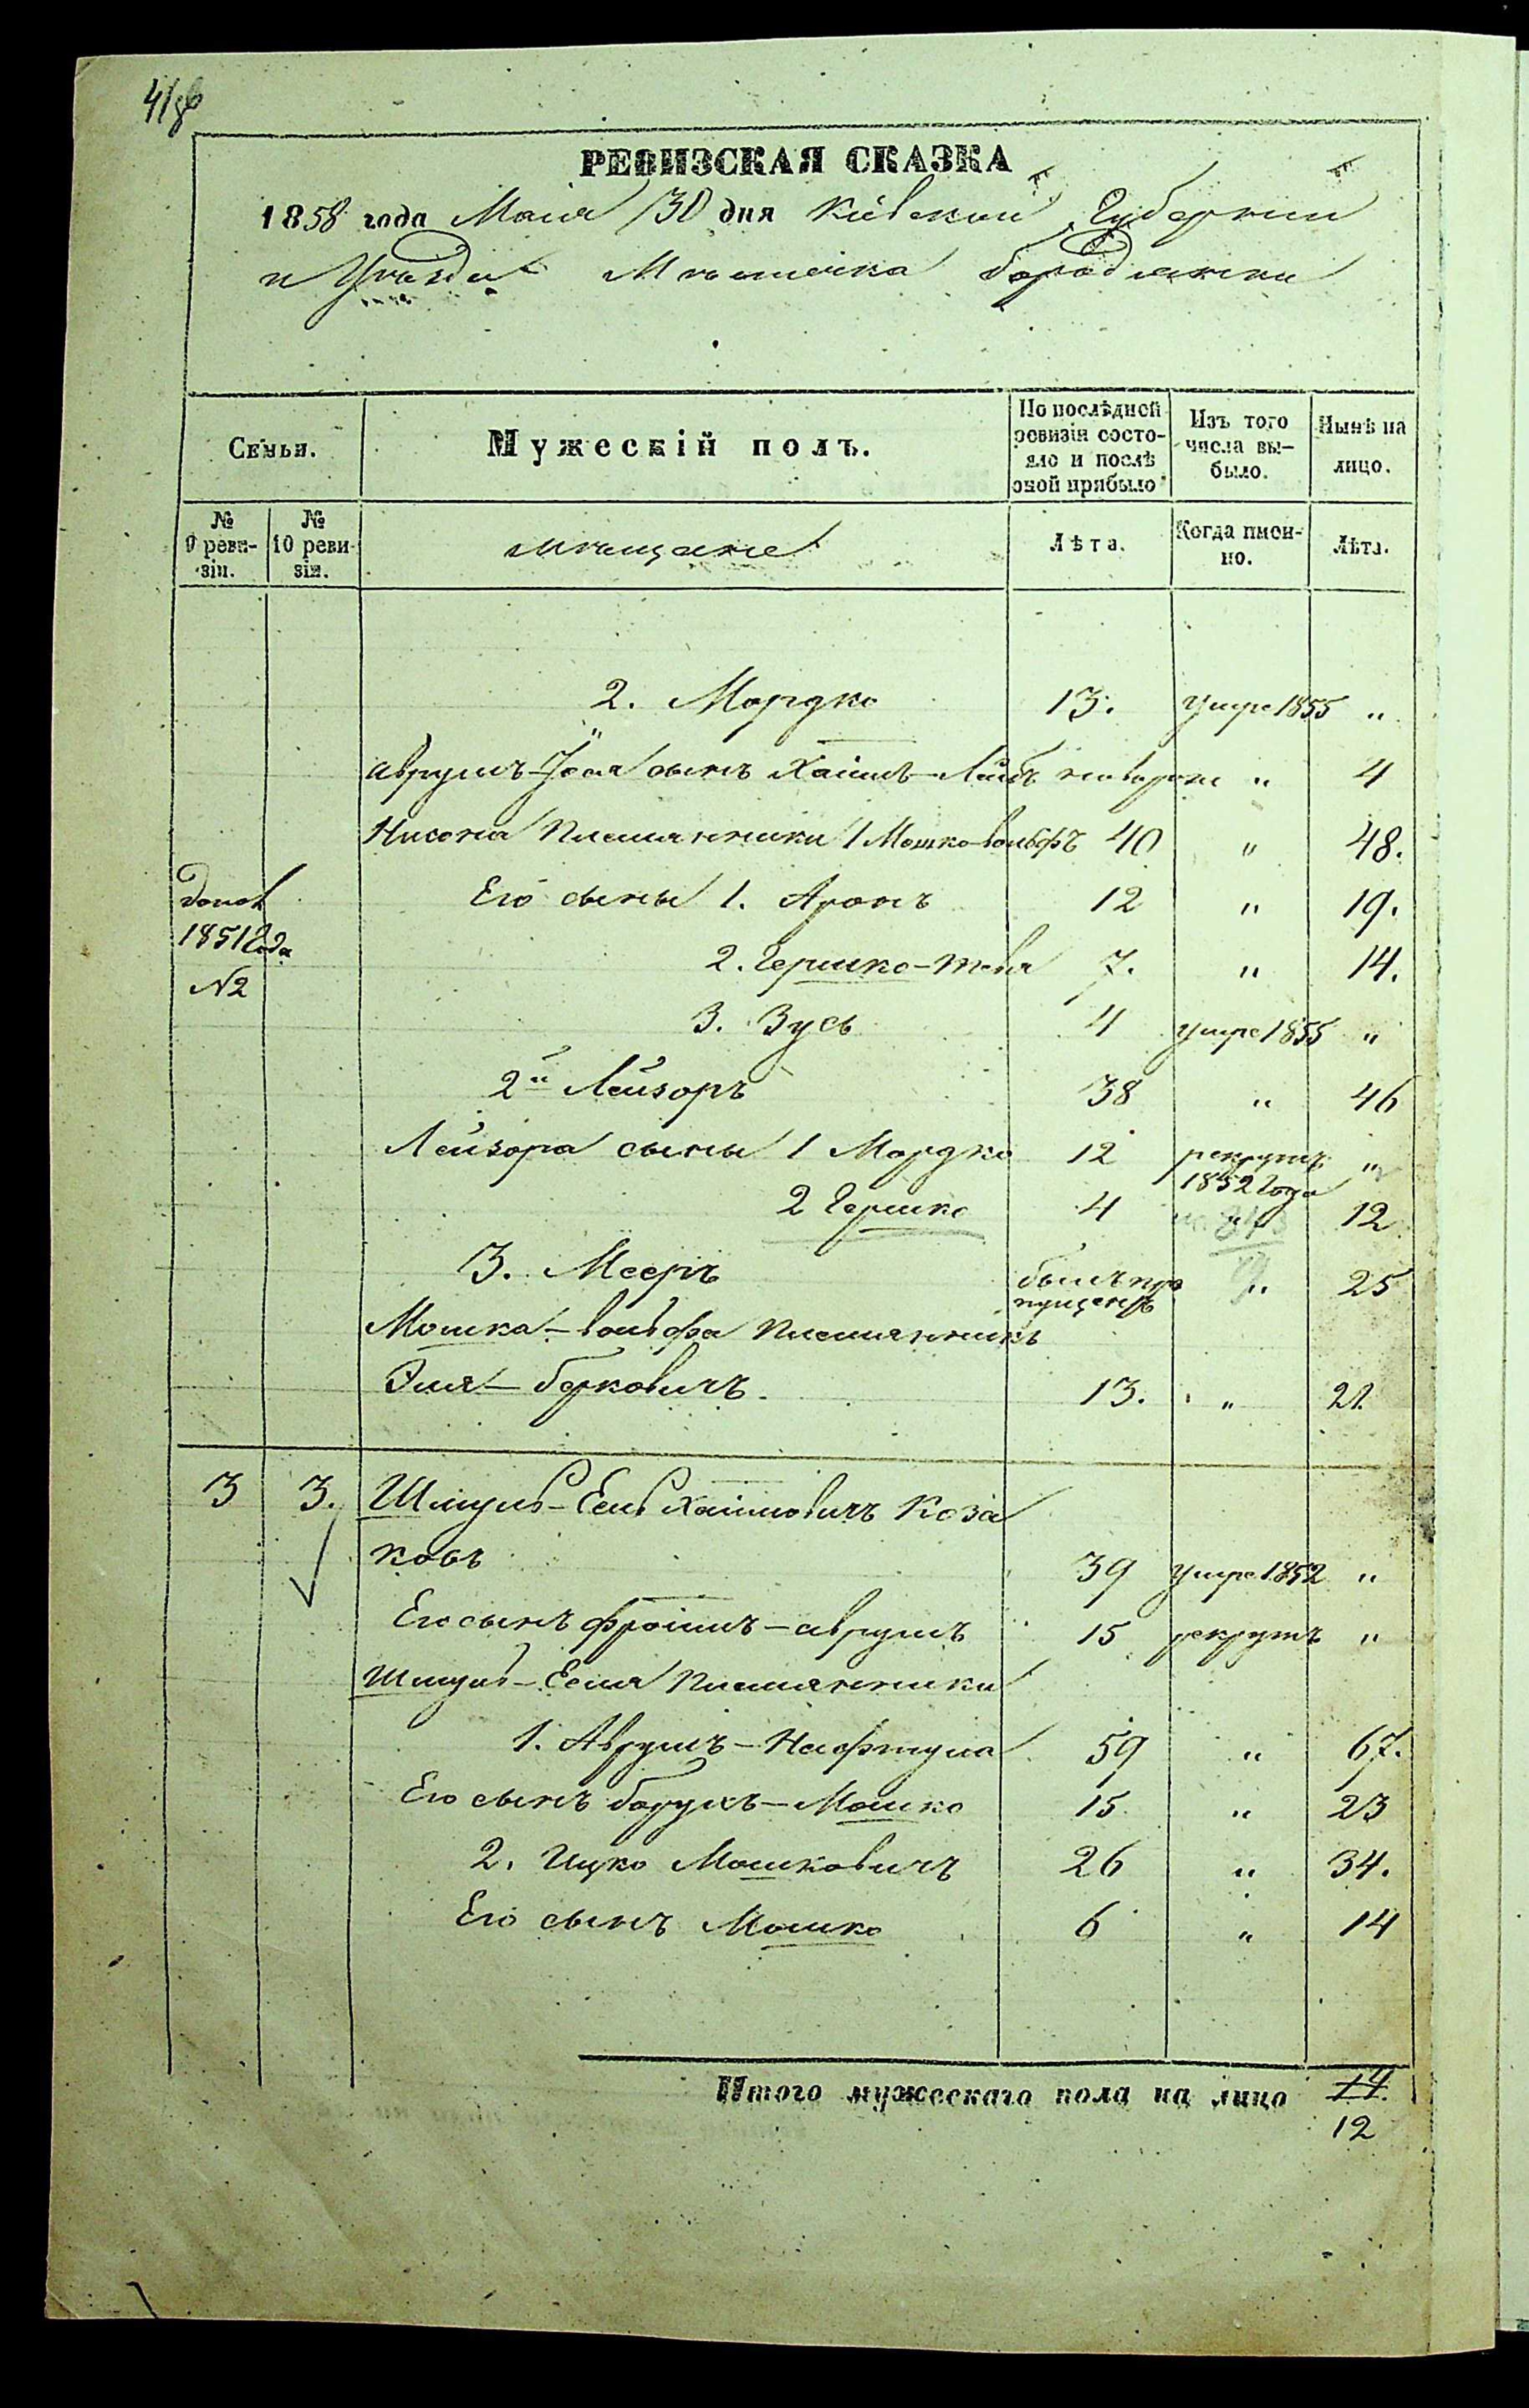 РЕВИЗСКАЯ СКАЗКА
1858 года Маія 30 дня Кіевской Губерніи
и Уезда Мѣстечка Бородянки
Семьи.
Мужескій полъ.
По послѣдней ревизіи состояло и послѣ оной прибыло
Изъ того числа выбыло.
Нынѣ на лицо.
№ 9 ревизіи.
№ 10 ревизіи.
мѣщане
Лѣта.
Когда имянно.
Лѣта.
2. Мордко 13. умре 1855 "
Аврумъ-Іося сынъ Хаимъ-Лейбъ новорож " 4
Нисона Племянники 1 Мошко-Вольфъ 40 " 48.
допол
1851 года
№ 2
Его сыны 1. Аронъ 12 " 19.
2. Гершко-Тевя 7. " 14.
3. Зусь 4 умре 1855 "
2й Лейзоръ 38 " 46
Лейзора сыны 1 Мордко 12 рекрутъ 1852 года "
2 Гершко 4 " 12
3. Мееръ былъ пропущенъ " 25
Мошка-Вольфа Племянникъ
Эля-Берковичъ. 13. " 21.
3 3. Шмуль-Ель Хаимовичъ Коза
ковъ 39 умре 1852 "
Его сынъ Фроимъ-Аврумъ 15 рекрутъ "
Шмуль-Еля Племянники
1. Аврумъ-Нафтула 59 " 67.
Его сынъ Борухъ-Мошко 15. " 23
2. Ицко Мошковичъ 26 " 34.
Его сынъ Мошко 6 " 14
Итого мужескаго пола на лицо 14.
12